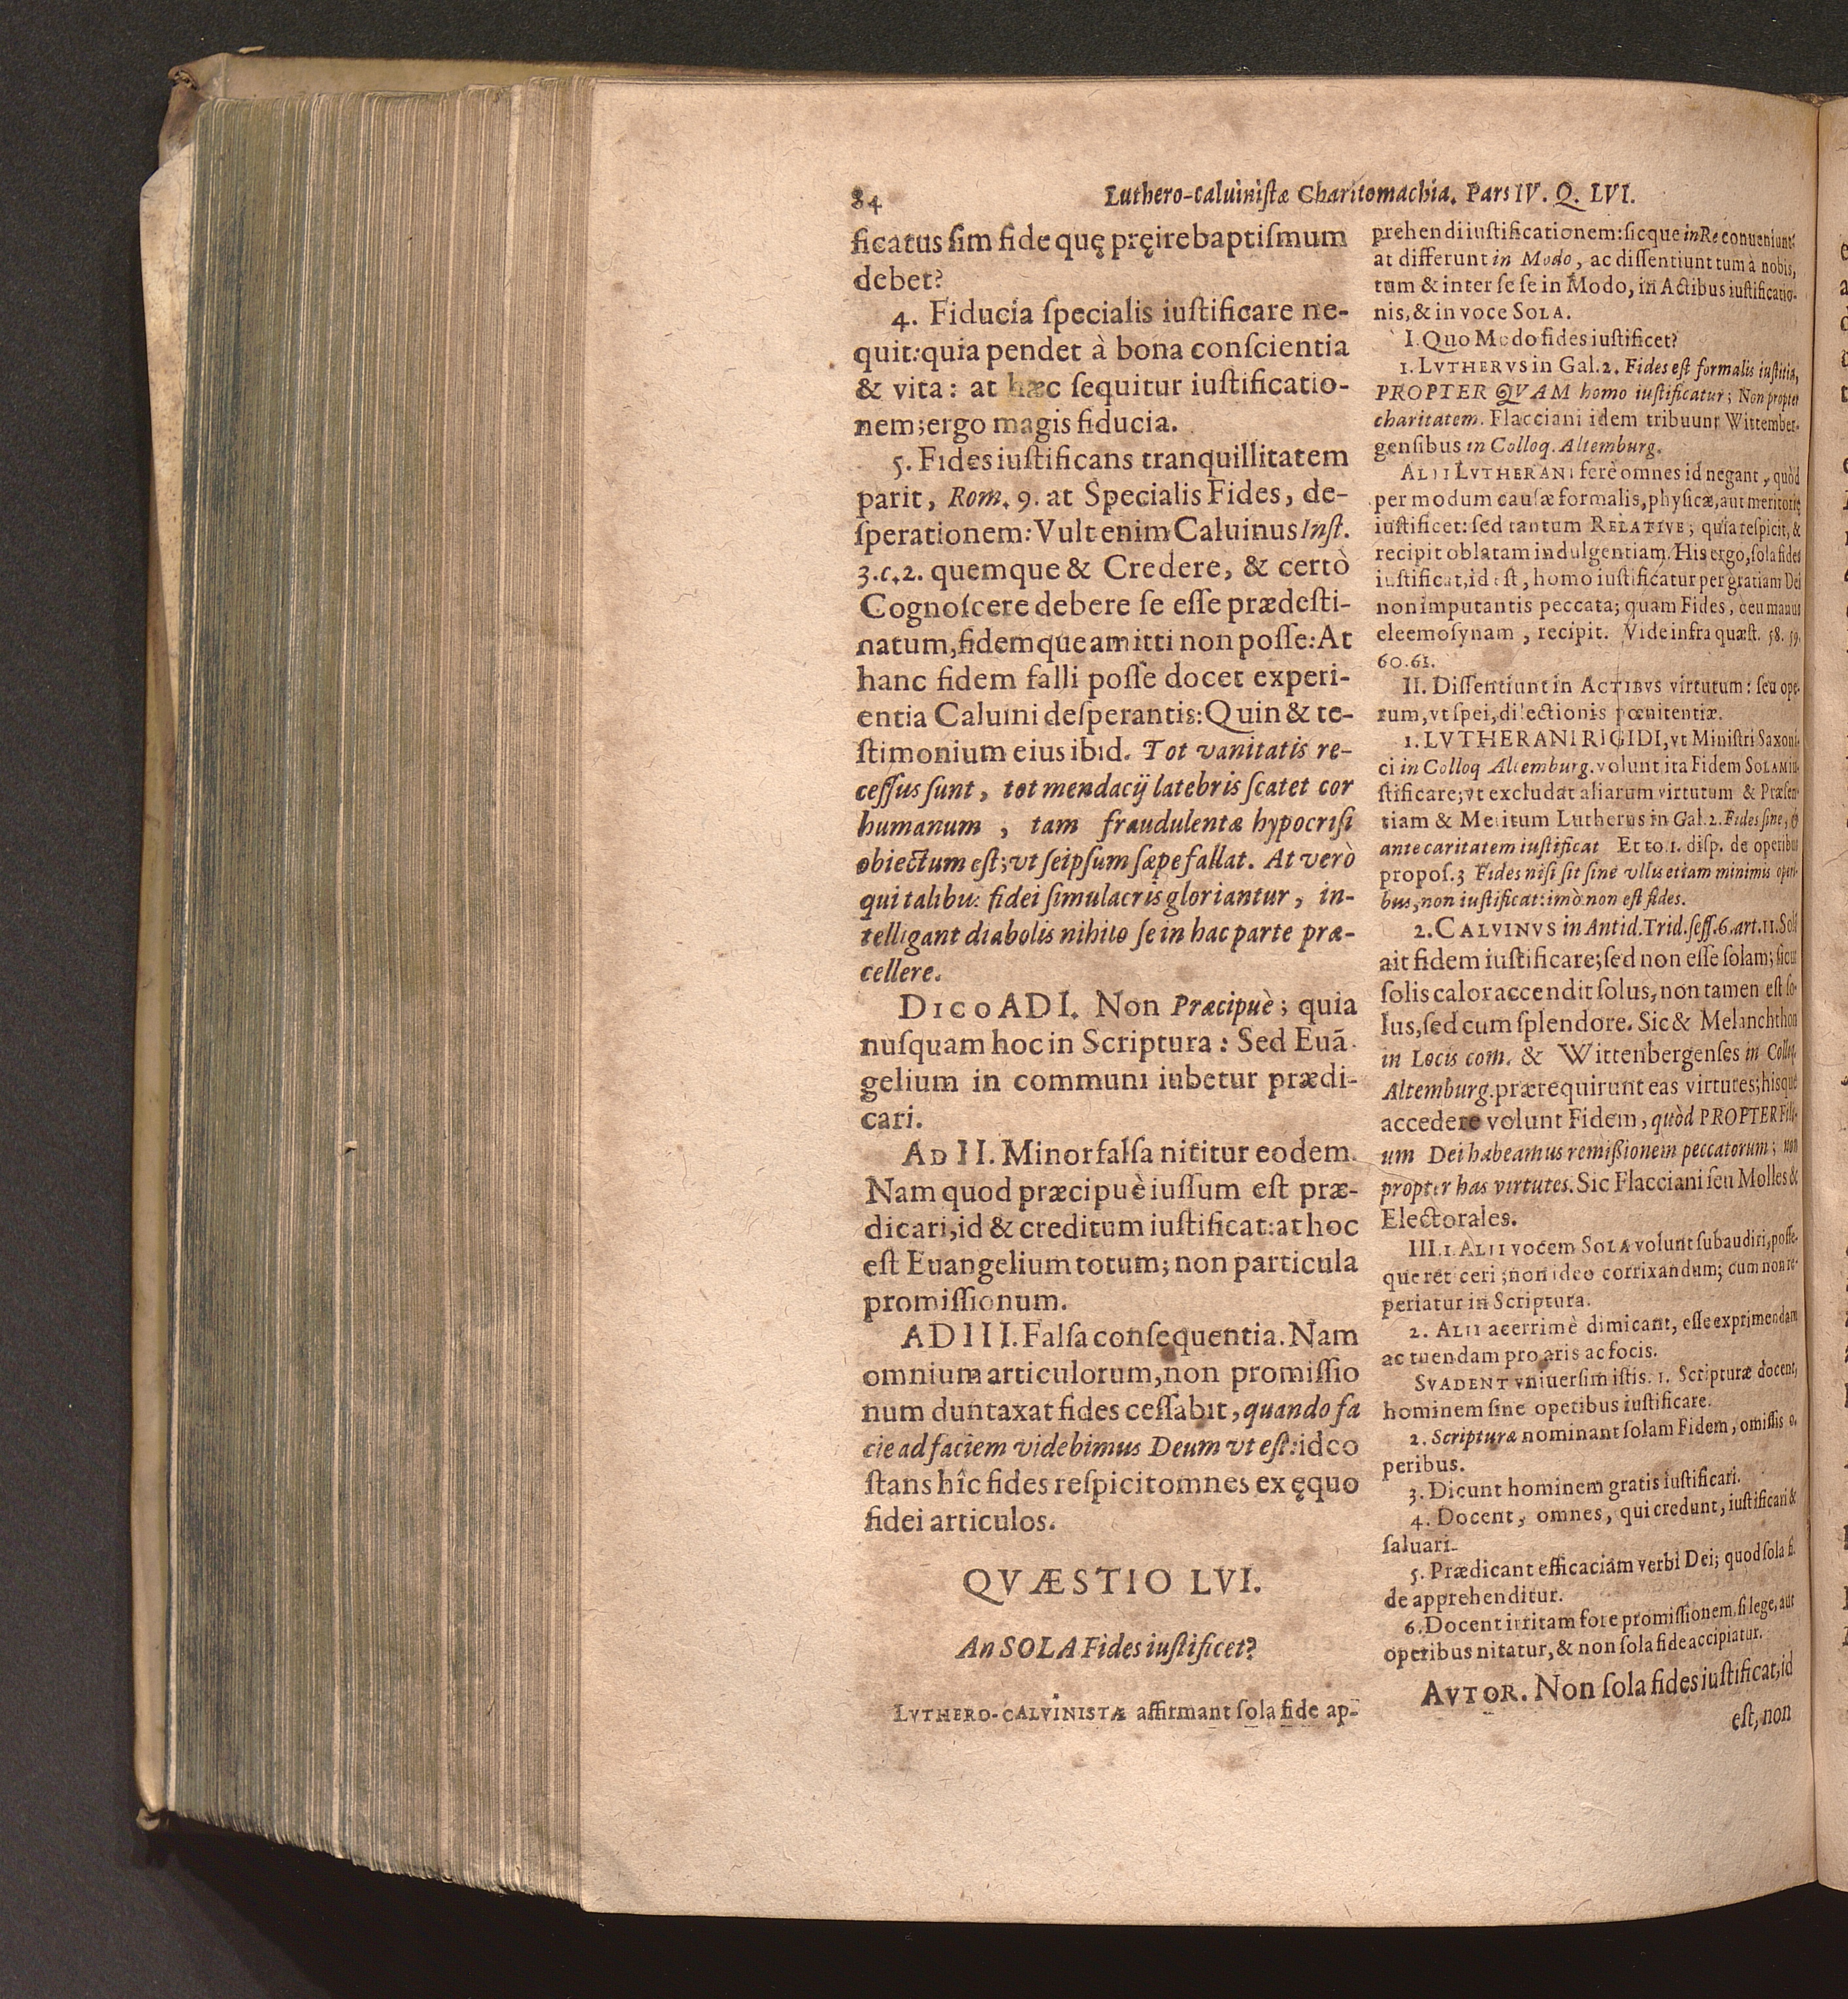 84
Luthero-calvinistæ Charitomachia. Pars IV. Q. LVI.
ficatus ſim fide quę pręire baptiſmum
debet?
4. Fiducia ſpecialis iuſtificare ne-
quit: quia pendet à bona conſcientia
& vita: at hæc ſequitur iuſtificatio-
nem; ergo magis fiducia.
5. Fides iuſtificans tranquillitatem
parit, Rom. 9. at Specialis Fides, de-
ſperationem: Vult enim Caluinus Inſt.
3.c.2. quemque & Credere, & certò
Cognoſcere debere ſe eſſe prædeſti-
natum, fidemque amitti non poſſe: At
hanc fidem falli poſſe docet experi-
entia Caluini deſperantis: Quin & te-
ſtimonium eius ibid. Tot vanitatis re-
ceſſus ſunt, tot mendacij latebris ſcatet cor
humanum, tam fraudulenta hypocriſi
obiectum eſt; vt ſeipſum ſæpe fallat. At verò
qui talibus fidei ſimulacris gloriantur, in-
telligant diabolis nihilo ſe in hac parte præ-
cellere.
DICO AD I. Non Præcipuè; quia
nuſquam hoc in Scriptura: Sed Euā-
gelium in communi iubetur prædi-
cari.
AD II. Minor falſa nititur eodem.
Nam quod præcipuè iuſſum eſt præ-
dicari, id & creditum iuſtificat: at hoc
eſt Euangelium totum; non particula
promiſſionum.
AD III. Falſa conſequentia. Nam
omnium articulorum, non promiſſio
num duntaxat fides ceſſabit, quando fa
cie ad faciem videbimus Deum vt eſt: ideo
ſtans hîc fides reſpicit omnes ex ęquo
fidei articulos.
QVÆSTIO LVI.
An SOLA Fides iuſtificet?
LVTHERO-CALVINISTÆ affirmant ſola fide ap-
prehendi iuſtificationem: ſicque in Re conueniunt:
at differunt in Modo, ac diſſentiunt tum à nobis,
tum & inter ſe ſe in Modo, in Actibus iuſtificatio-
nis, & in voce SOLA.
I. Quo Modo fides iuſtificet?
1. LVTHERVS in Gal. 2. Fides eſt formalis iuſtitia,
PROPTER QVAM homo iuſtificatur; Non propter
charitatem. Flacciani idem tribuunt Wittember-
genſibus in Colloq. Altemburg.
ALII LVTHERANI ferè omnes id negant, quòd
per modum cauſæ formalis, phyſicæ, aut meritorię
iuſtificet: ſed tantum RELATIVE; quia reſpicit, &
recipit oblatam indulgentiam. His ergo, ſola fides
iuſtificat, id eſt, homo iuſtificatur per gratiam Dei
non imputantis peccata; quam Fides, ceu manus
eleemoſynam, recipit. Vide infra quæſt. 58. 59.
60. 61.
II. Diſſentiunt in ACTIBVS virtutum: ſeu ope-
rum, vt ſpei, dilectionis pœnitentiæ.
1. LVTHERANI RIGIDI, vt Miniſtri Saxoni-
ci in Colloq Altemburg. volunt ita Fidem SOLAM iu-
ſtificare; vt excludat aliarum virtutum & Præſen-
tiam & Meritum Lutherus in Gal. 2. Fides ſine, &
ante caritatem iuſtificat Et to. 1. diſp. de operibus
propoſ. 3 Fides niſi ſit ſine vllis etiam minimis operi-
bus, non iuſtificat: imò non eſt fides.
2. CALVINVS in Antid. Trid. ſeſſ. 6. art. 11. Solā
ait fidem iuſtificare; ſed non eſſe ſolam; ſicut
ſolis calor accendit ſolus, non tamen eſt ſo-
lus, ſed cum ſplendore. Sic & Melanchthon
in Locis com. & Wittenbergenſes in Colloq.
Altemburg. prærequirunt eas virtutes; hisque
accedere volunt Fidem, quòd PROPTER Fili-
um Dei habeamus remiſſionem peccatorum; non
propter has virtutes. Sic Flacciani ſeu Molles &
Electorales.
III. 1. ALII vocem SOLA volunt ſubaudiri, poſſe-
que reticeri; non ideo corrixandum; cum non re-
periatur in Scriptura.
2. ALII acerrimè dimicant, eſſe exprimendam
ac tuendam pro aris ac focis.
SVADENT vniuerſim iſtis. 1. Scripturæ docent,
hominem ſine operibus iuſtificare.
2. Scripturæ nominant ſolam Fidem, omiſſis o-
peribus.
3. Dicunt hominem gratis iuſtificari.
4. Docent, omnes, qui credunt, iuſtificari &
ſaluari.
5. Prædicant efficaciam verbi Dei; quod ſola fi-
de apprehenditur.
6. Docent irritam fore promiſſionem, ſi lege, aut
operibus nitatur, & non ſola fide accipiatur.
AVTOR. Non ſola fides iuſtificat, id
eſt, non